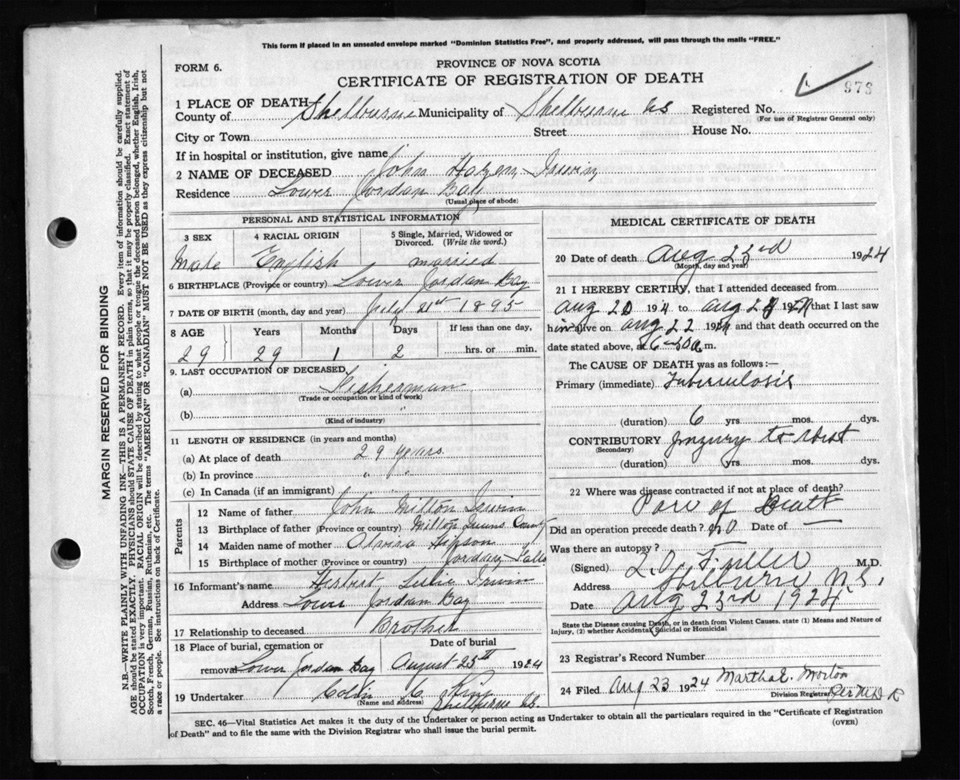 This form if placed in an unsealed envelope marked "Dominion Statistics Free", and properly addressed, will pass through the mails "FREE."
FORM 6.
PROVINCE OF NOVA SCOTIA
CERTIFICATE OF REGISTRATION OF DEATH
973
1 PLACE OF DEATH
County of Shelburne Municipality of Shelburne Registered No.
(For use of Registrar General only)
City or Town Street House No.
If in hospital or institution, give name
2 NAME OF DECEASED John Hazen Irwin
Residence Lower Jordan Bay
(Usual place of abode)
PERSONAL AND STATISTICAL INFORMATION
3 SEX 4 RACIAL ORIGIN 5 Single, Married, Widowed or Divorced. (Write the word.)
Male English married
6 BIRTHPLACE (Province or country) Lower Jordan Bay
7 DATE OF BIRTH (month, day and year) July 21st 1895
8 AGE Years Months Days If less than one day,
29 29 1 2 hrs. or min.
9. LAST OCCUPATION OF DECEASED,
(a) Fisherman
(Trade or occupation or kind of work)
(b) "
(Kind of industry)
11 LENGTH OF RESIDENCE (in years and months)
(a) At place of death 29 years
(b) In province " "
(c) In Canada (if an immigrant)
Parents
12 Name of father John Milton Irwin
13 Birthplace of father (Province or country) Milton Queens County
14 Maiden name of mother Hipson
15 Birthplace of mother (Province or country) Jordan Falls
16 Informant's name Herbert Leslie Irwin
Address Lower Jordan Bay
17 Relationship to deceased Brother
18 Place of burial, cremation or Date of burial
removal Lower Jordan Bay August 25th 1924
19 Undertaker Colin C King
(Name and address) Shelburne
MEDICAL CERTIFICATE OF DEATH
20 Date of death Aug 23rd 1924
(Month, day and year)
21 I HEREBY CERTIFY, that I attended deceased from
Aug 20 192 to Aug 192 that I last saw
him alive on Aug 22 192 and that death occurred on the
date stated above, at m.
The CAUSE OF DEATH was as follows:—
Primary (immediate) Tuberculosis
(duration) 6 yrs. mos. dys.
CONTRIBUTORY Injury to
(Secondary)
(duration) yrs. mos. dys.
22 Where was disease contracted if not at place of death?
of Death
Did an operation precede death? no Date of —
Was there an autopsy?
(Signed) L.O. Fuller M.D.
Address Shelburne N.S.
Date Aug 23rd 1924
State the Disease causing Death, or in death from Violent Causes, state (1) Means and Nature of Injury, (2) whether Accidental, Suicidal or Homicidal
23 Registrar's Record Number
24 Filed Aug 23 1924 Martha E. Morton
Division Registrar
SEC. 46—Vital Statistics Act makes it the duty of the Undertaker or person acting as Undertaker to obtain all the particulars required in the "Certificate of Registration of Death" and to file the same with the Division Registrar who shall issue the burial permit.
(OVER)
MARGIN RESERVED FOR BINDING
N.B.—WRITE PLAINLY WITH UNFADING INK—THIS IS A PERMANENT RECORD. Every item of information should be carefully supplied.
AGE should be stated EXACTLY. PHYSICIANS should STATE CAUSE OF DEATH in plain terms, so that it may be properly classified. Exact statement of
OCCUPATION is very important. RACIAL ORIGIN will be described by stating to what people or tongue the deceased person belonged, whether English, Irish,
Scotch, French, German, Russian, Ruthenian, etc. The terms "AMERICAN" or "CANADIAN" MUST NOT BE USED as they express citizenship but not
a race or people. See instructions on back of Certificate.